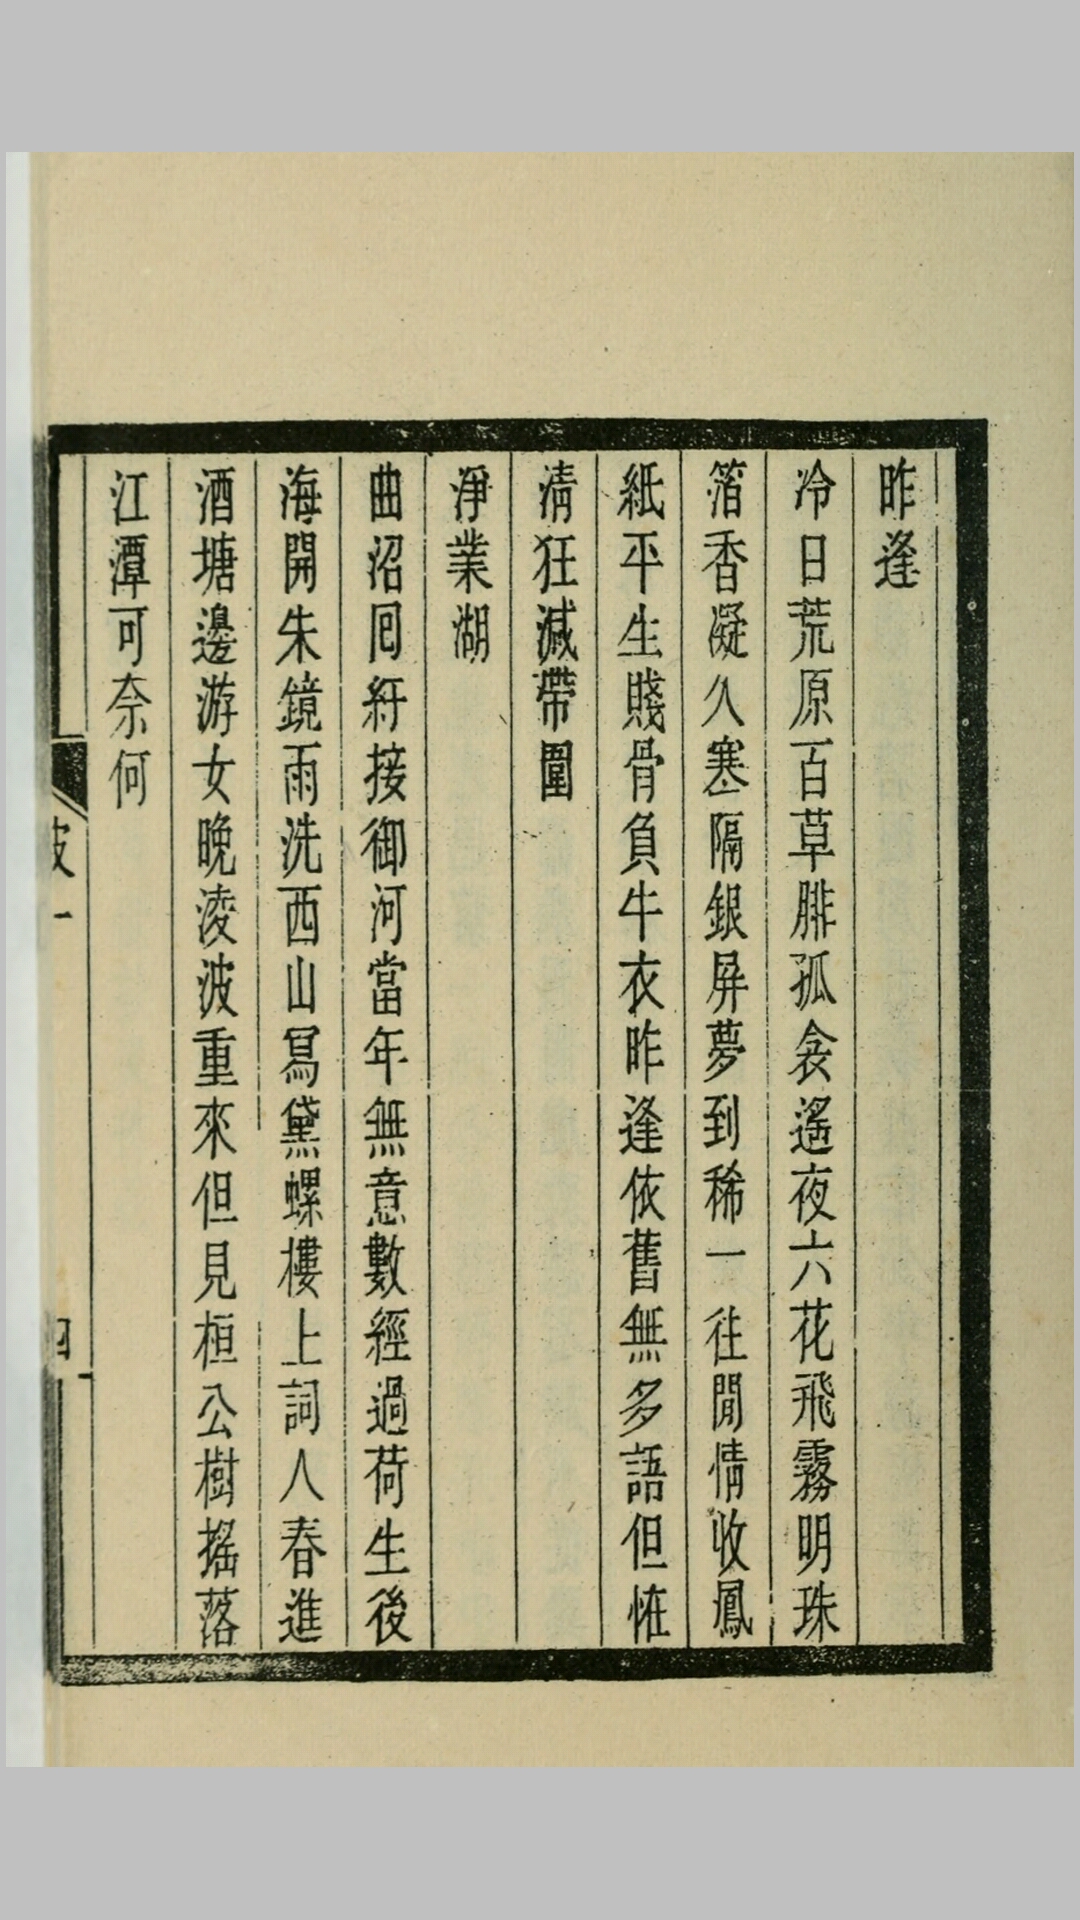 昨逢
冷日荒原百草腓孤衾遙夜六花飛霧明珠
箔香凝久塞隔銀屏夢到稀一往閒情收鳳
紙平生賤骨負牛衣昨逢依舊無多語但恠
清狂減帶圍
淨業湖
曲沼囘紆接御河當年無意數經過荷生後
海開朱鏡雨洗西山冩黛螺樓上詞人春進
酒塘邊游女晚淩波重來但見桓公樹搖落
江潭可奈何
波一
四